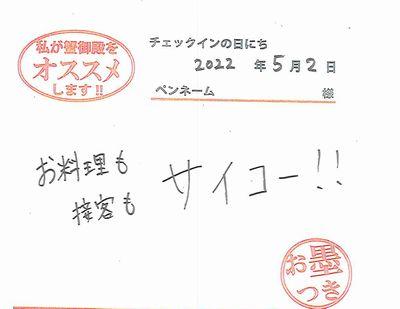 私が蟹御殿を
オススメ
します!!
チェックインの日にち
2022 年 5 月 2 日
ペンネーム 様
お料理も
接客も サイコー!!
お墨
つき